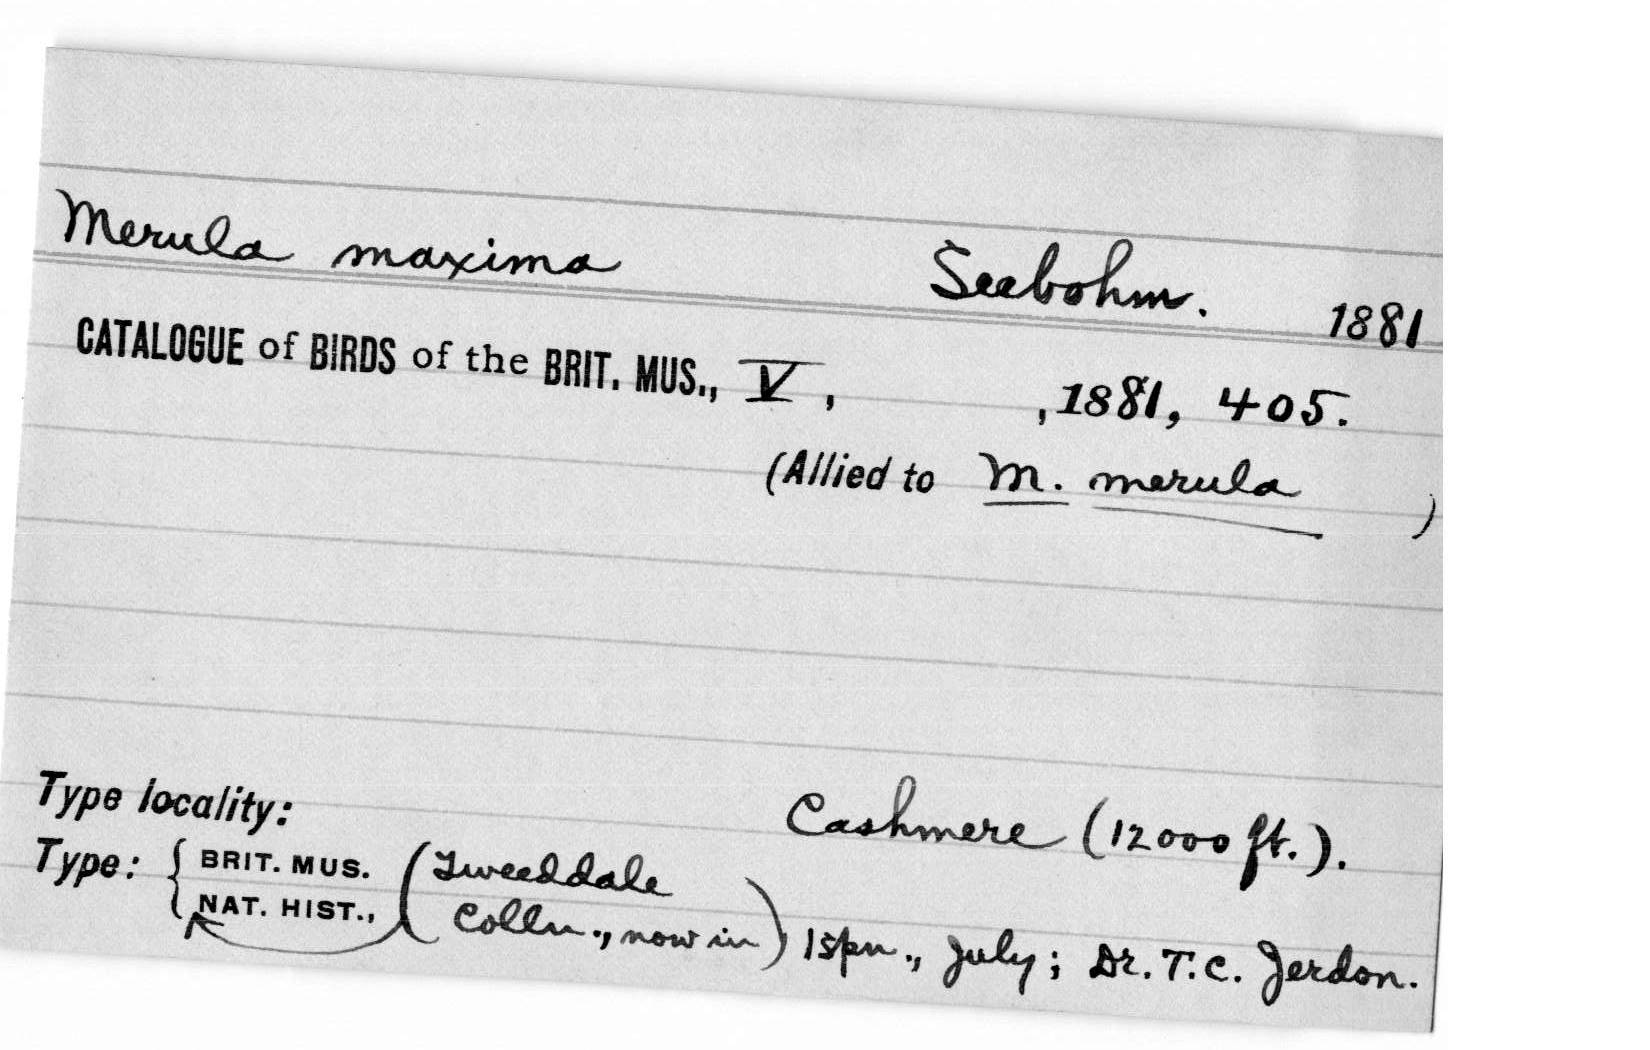 Merula maxima Seebohm. 1881
CATALOGUE of BIRDS of the BRIT. MUS., V, , 1881, 405.
(Allied to M. merula )
Type locality: Cashmere (12000 ft.).
Type: { BRIT. MUS. NAT. HIST., (Tweeddale Colln., now in) 1 spn., July; Dr. T. C. Jerdon.